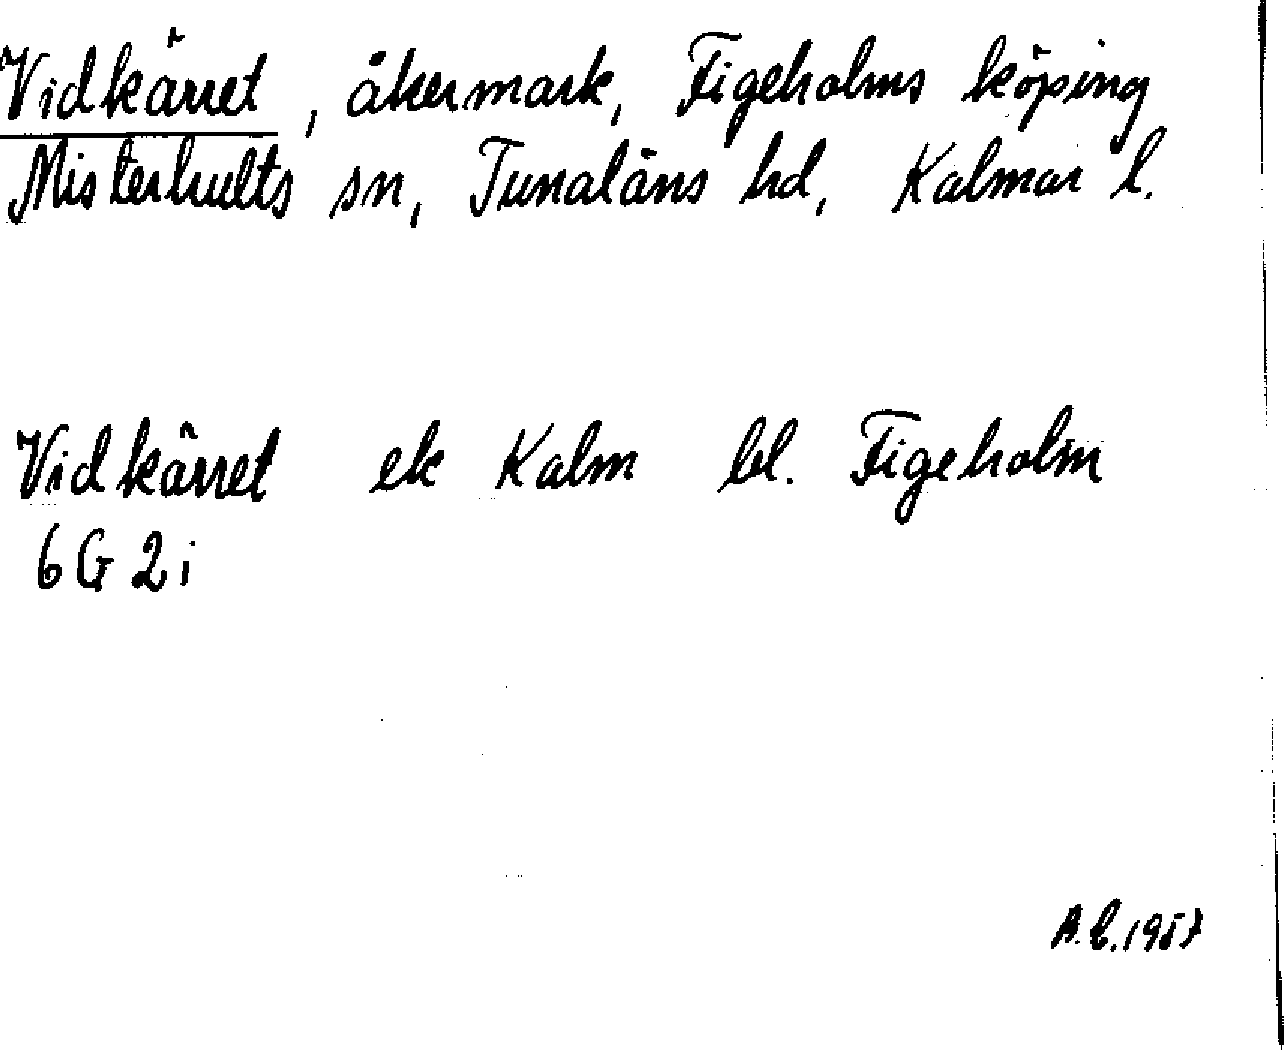 Vidkärret, åkermark, Figeholms köping
Misterhults sn, Tunaläns hd, Kalmar l.
Vidkärret ek Kalm bl. Figeholm
6G 2i